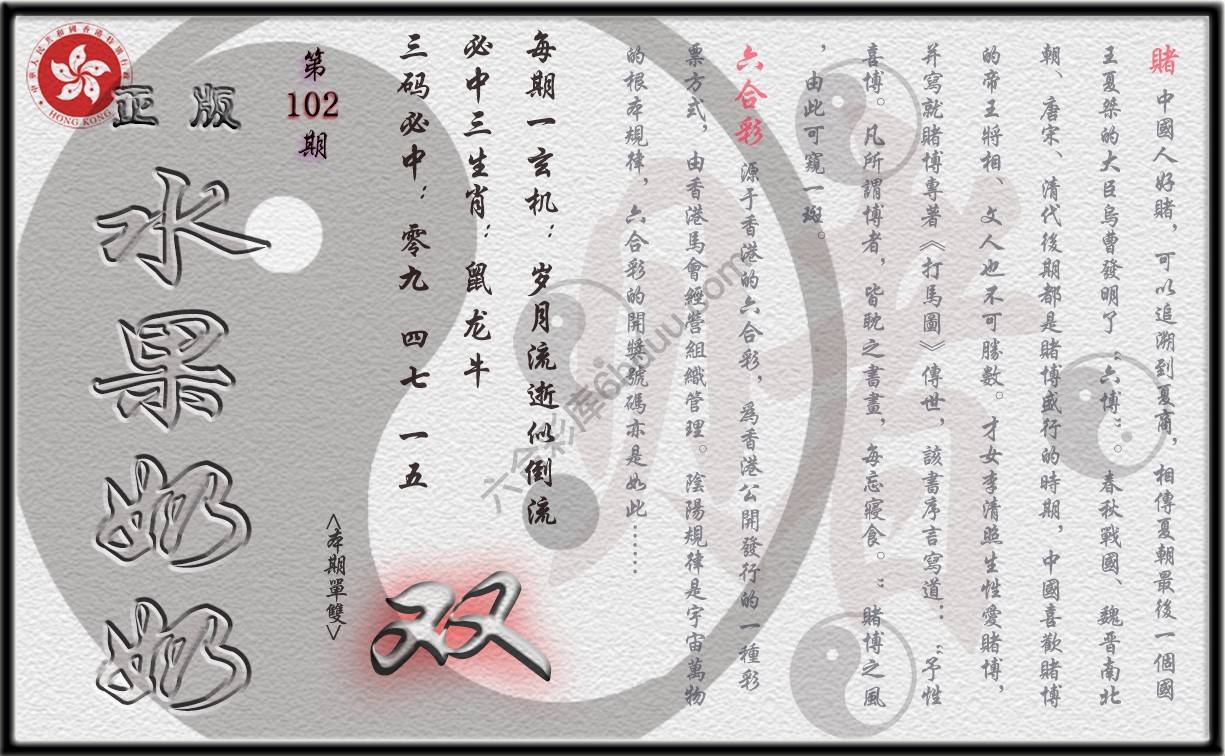 賭 中國人好賭，可以追溯到夏商，相傳夏朝最後一個國
王夏桀的大臣烏曹發明了“六博”。春秋戰國、魏晋南北
朝、唐宋、清代後期都是賭博盛行的時期，中國喜歡賭博
的帝王將相、文人也不可勝數。才女李清照生性愛賭博，
并寫就賭博專著《打馬圖》傳世，該書序言寫道：“予性
喜博。凡所謂博者，皆耽之晝畫，每忘寢食。”賭博之風
，由此可窺一斑。
六合彩 源于香港的六合彩，爲香港公開發行的一種彩
票方式，由香港馬會經營組織管理。陰陽規律是宇宙萬物
的根本規律，六合彩的開獎號碼亦是如此……
每期一玄机：岁月流逝似倒流
必中三生肖：鼠龙牛
三码必中：零九 四七 一五
<本期單雙>
双
第
102
期
正版
水果奶奶
中華人民共和國香港特別行政區
HONG KONG
六合彩库6hduu.com